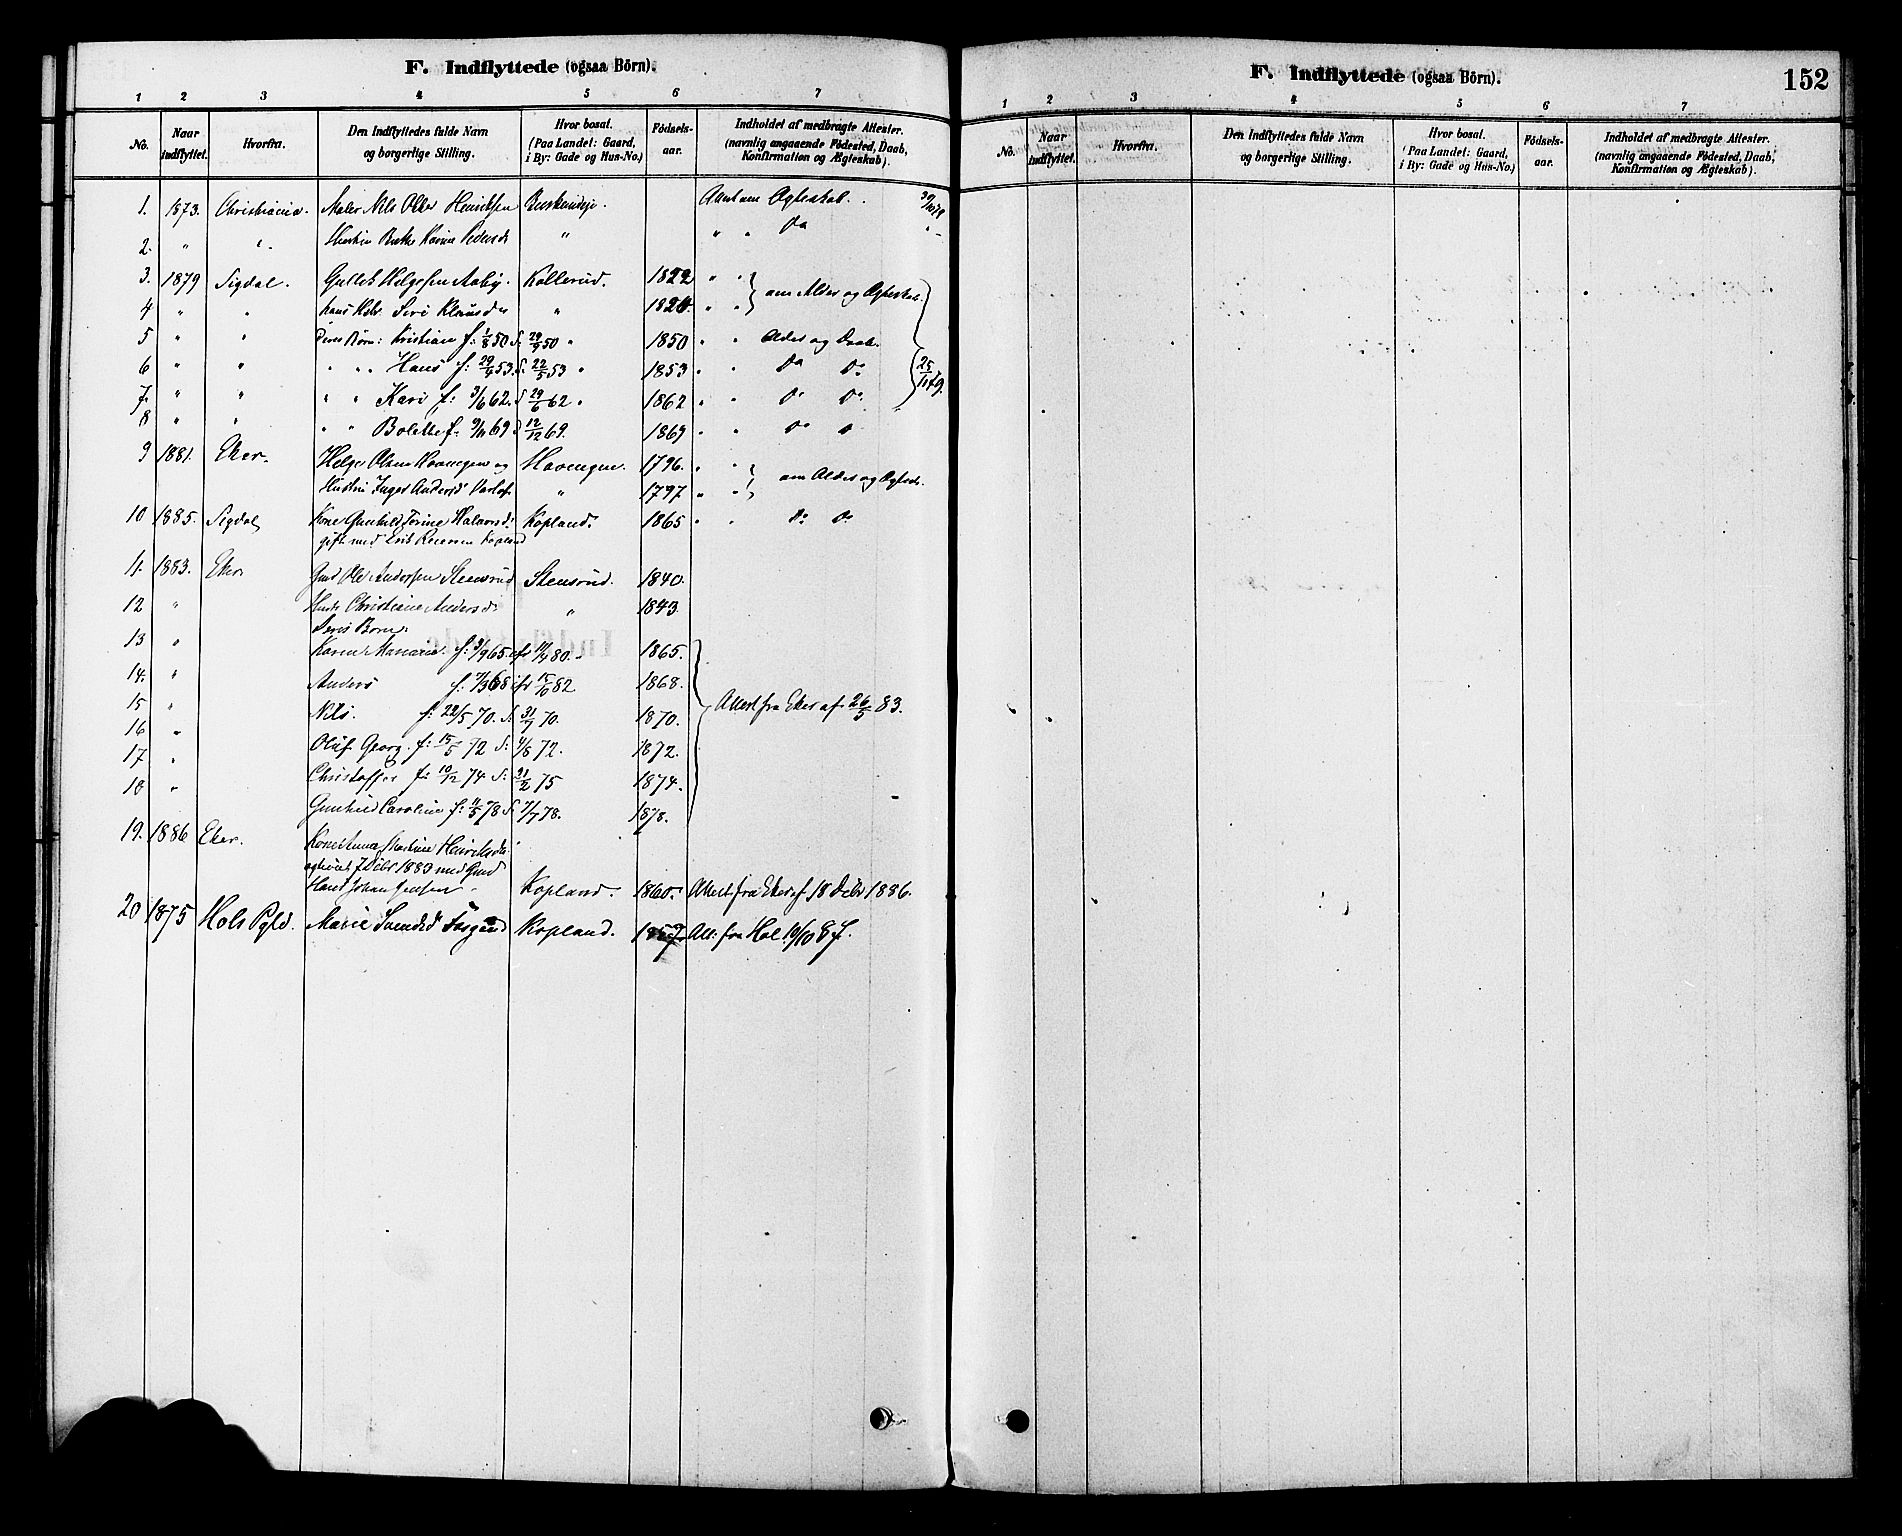 F. Indflyttede (ogsaa Börn).
1 2 3 4 5 6 7
No. Naar indflyttet. Hvorfra. Den Indflyttedes fulde Navn og borgerlige Stilling. Hvor bosat. (Paa Landet: Gaard, i By: Gade og Hus-No.) Fødsels-aar. Indholdet af medbragte Attester. (navnlig angaaende Födested, Daab, Konfirmation og Ægteskab).
1. 1873. Christiania. Maler Nils Henriksen Ægteskab.
2. " " Hustru Karine Pedersd " " " Do
3. 1879 Sigdal. Gullik Helgesen Aaby. Kollerud. 1822 " "
4 " " hans Siri " " " om Alder og Ægteskab.
5 " " deres Børn: Kristian f: 1/8 50 d: 29/9 50 " 1850 " " Alder og Daab.
6 " " " " Hans f: 29/4 53. d. 22/5 53 " 1853 " " Do Do 25/11 79.
7. " " " " Kari f: 3/6 62. d 29/6 62 " 1862 " " Do Do
8 " " " " Bolette f. 9/11 69 d 12/12 69. 1869 " " Do
9 1881. Eker. Helge Olsen og 1796. " "
Hustru Inger Andersd " 1797 " " om Alder og Ægtesk.
10 1885. Sigdal Kone Gunhild Torine Halvorsd: Kopland. 1865 " " Do Do
gift med Kopland
11. 1883. Eker Gmd Ole Andersen Steensrud Stensrud. 1840.
12 " Hustr Christiane Andersd: " 1843.
Deres Børn:
13 " Karen f: 9/9 65. 80. " 1865.
14. " Anders 82 1868.
15 " Nils. f: 22/5 70. d: 31/7 70. 1870. Attest fra Eker af 26/5 83.
16 "
Oluf Georg. f: 15/5 72 d: 4/8 72. 1872.
17 "
Christoffer f: 10/12 74 d: 21/2 75 1874.
18 "
Gunhild Caroline f: 78 d: 7/7 78. 1878.
19. 1886 Eker. Kone Anna Martine Henriksd:
1883 med Gmd
Hans Johan Jensen Kopland. 1860. Attest fra Eker af 18 Debr 1886.
20 1875 Hols Pgld. Marie Svendsd Kopland. Att: fra Hol 10/10
F. Indflyttede (ogsaa Börn).
152
1 2 3 4 5 6 7
No. Naar indflyttet. Hvorfra. Den Indflyttedes fulde Navn og borgerlige Stilling. Hvor bosat. (Paa Landet: Gaard, i By: Gade og Hus-No.) Fødsels-aar. Indholdet af medbragte Attester. (navnlig angaaende Födested, Daab, Konfirmation og Ægteskab).